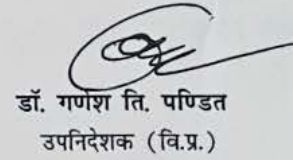 डॉ. गणेश ति. पण्डित
उपनिदेशक (वि.प्र.)